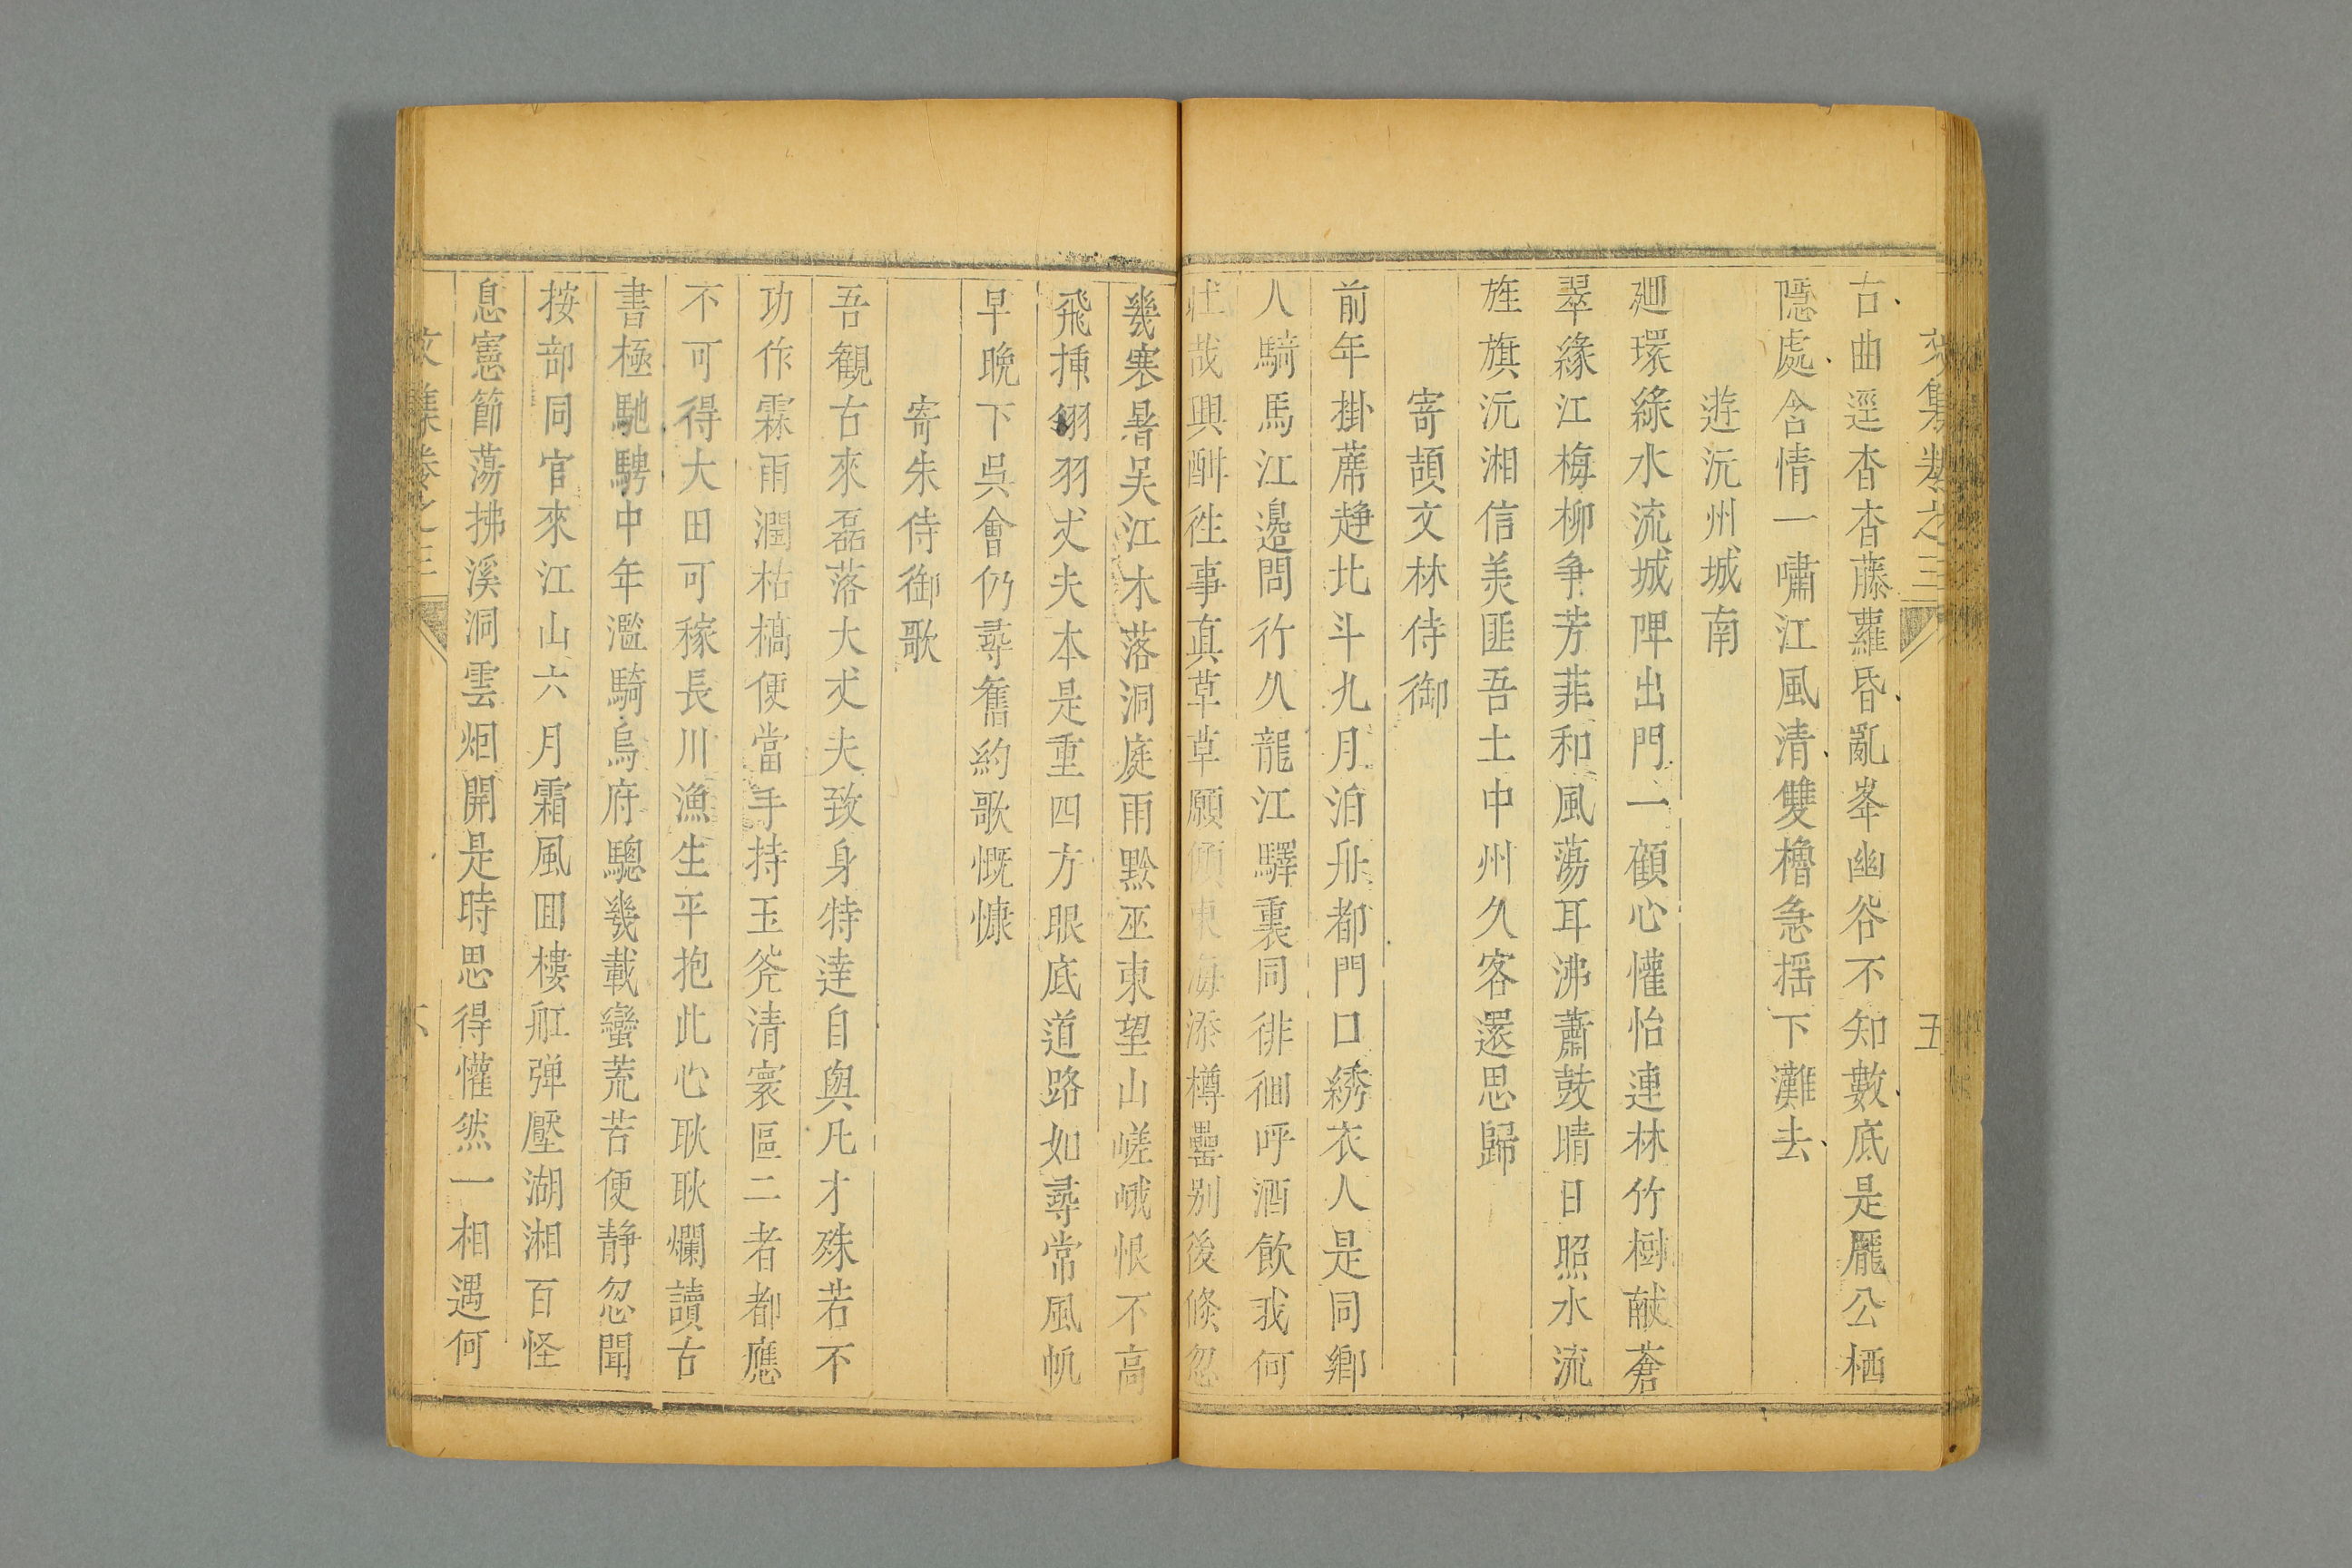 文集卷之三
五
古曲逕杳杳藤蘿昏亂峯幽谷不知數底是龐公栖
隱處含情一嘯江風清雙櫓急揺下灘去
遊沅州城南
廻環綠水流城陴出門一顧心懽怡連林竹樹蔽蒼
翠緣江梅柳争芳菲和風蕩耳沸蕭鼓晴日照水流
旌旗沅湘信美匪吾土中州久客還思歸
寄頡文林侍御
前年掛蓆趂北斗九月泊舟都門口綉衣人是同鄉
人騎馬江邊問行久龍江驛裏同徘徊呼酒飲我何
壯哉興酣徃事真草草願傾東海添樽罍别後倐忽
幾寒暑吴江木落洞庭雨黔巫東望山嵯峨恨不高
飛揷翎羽丈夫本是重四方眼底道路如尋常風帆
早晩下吳會仍尋舊約歌慨慷
寄朱侍御歌
吾觀古來磊落大丈夫致身特達自與凡才殊若不
功作霖雨潤枯槁便當手持玉斧清寰區二者都應
不可得大田可稼長川漁生平抱此心耿耿爛讀古
書極馳騁中年濫騎烏府驄幾載蠻荒苦便靜忽聞
按部同官來江山六月霜風囬樓舡弹壓湖湘百怪
息憲節蕩拂溪洞雲烟開是時思得懽然一相遇何
文集卷之三
六